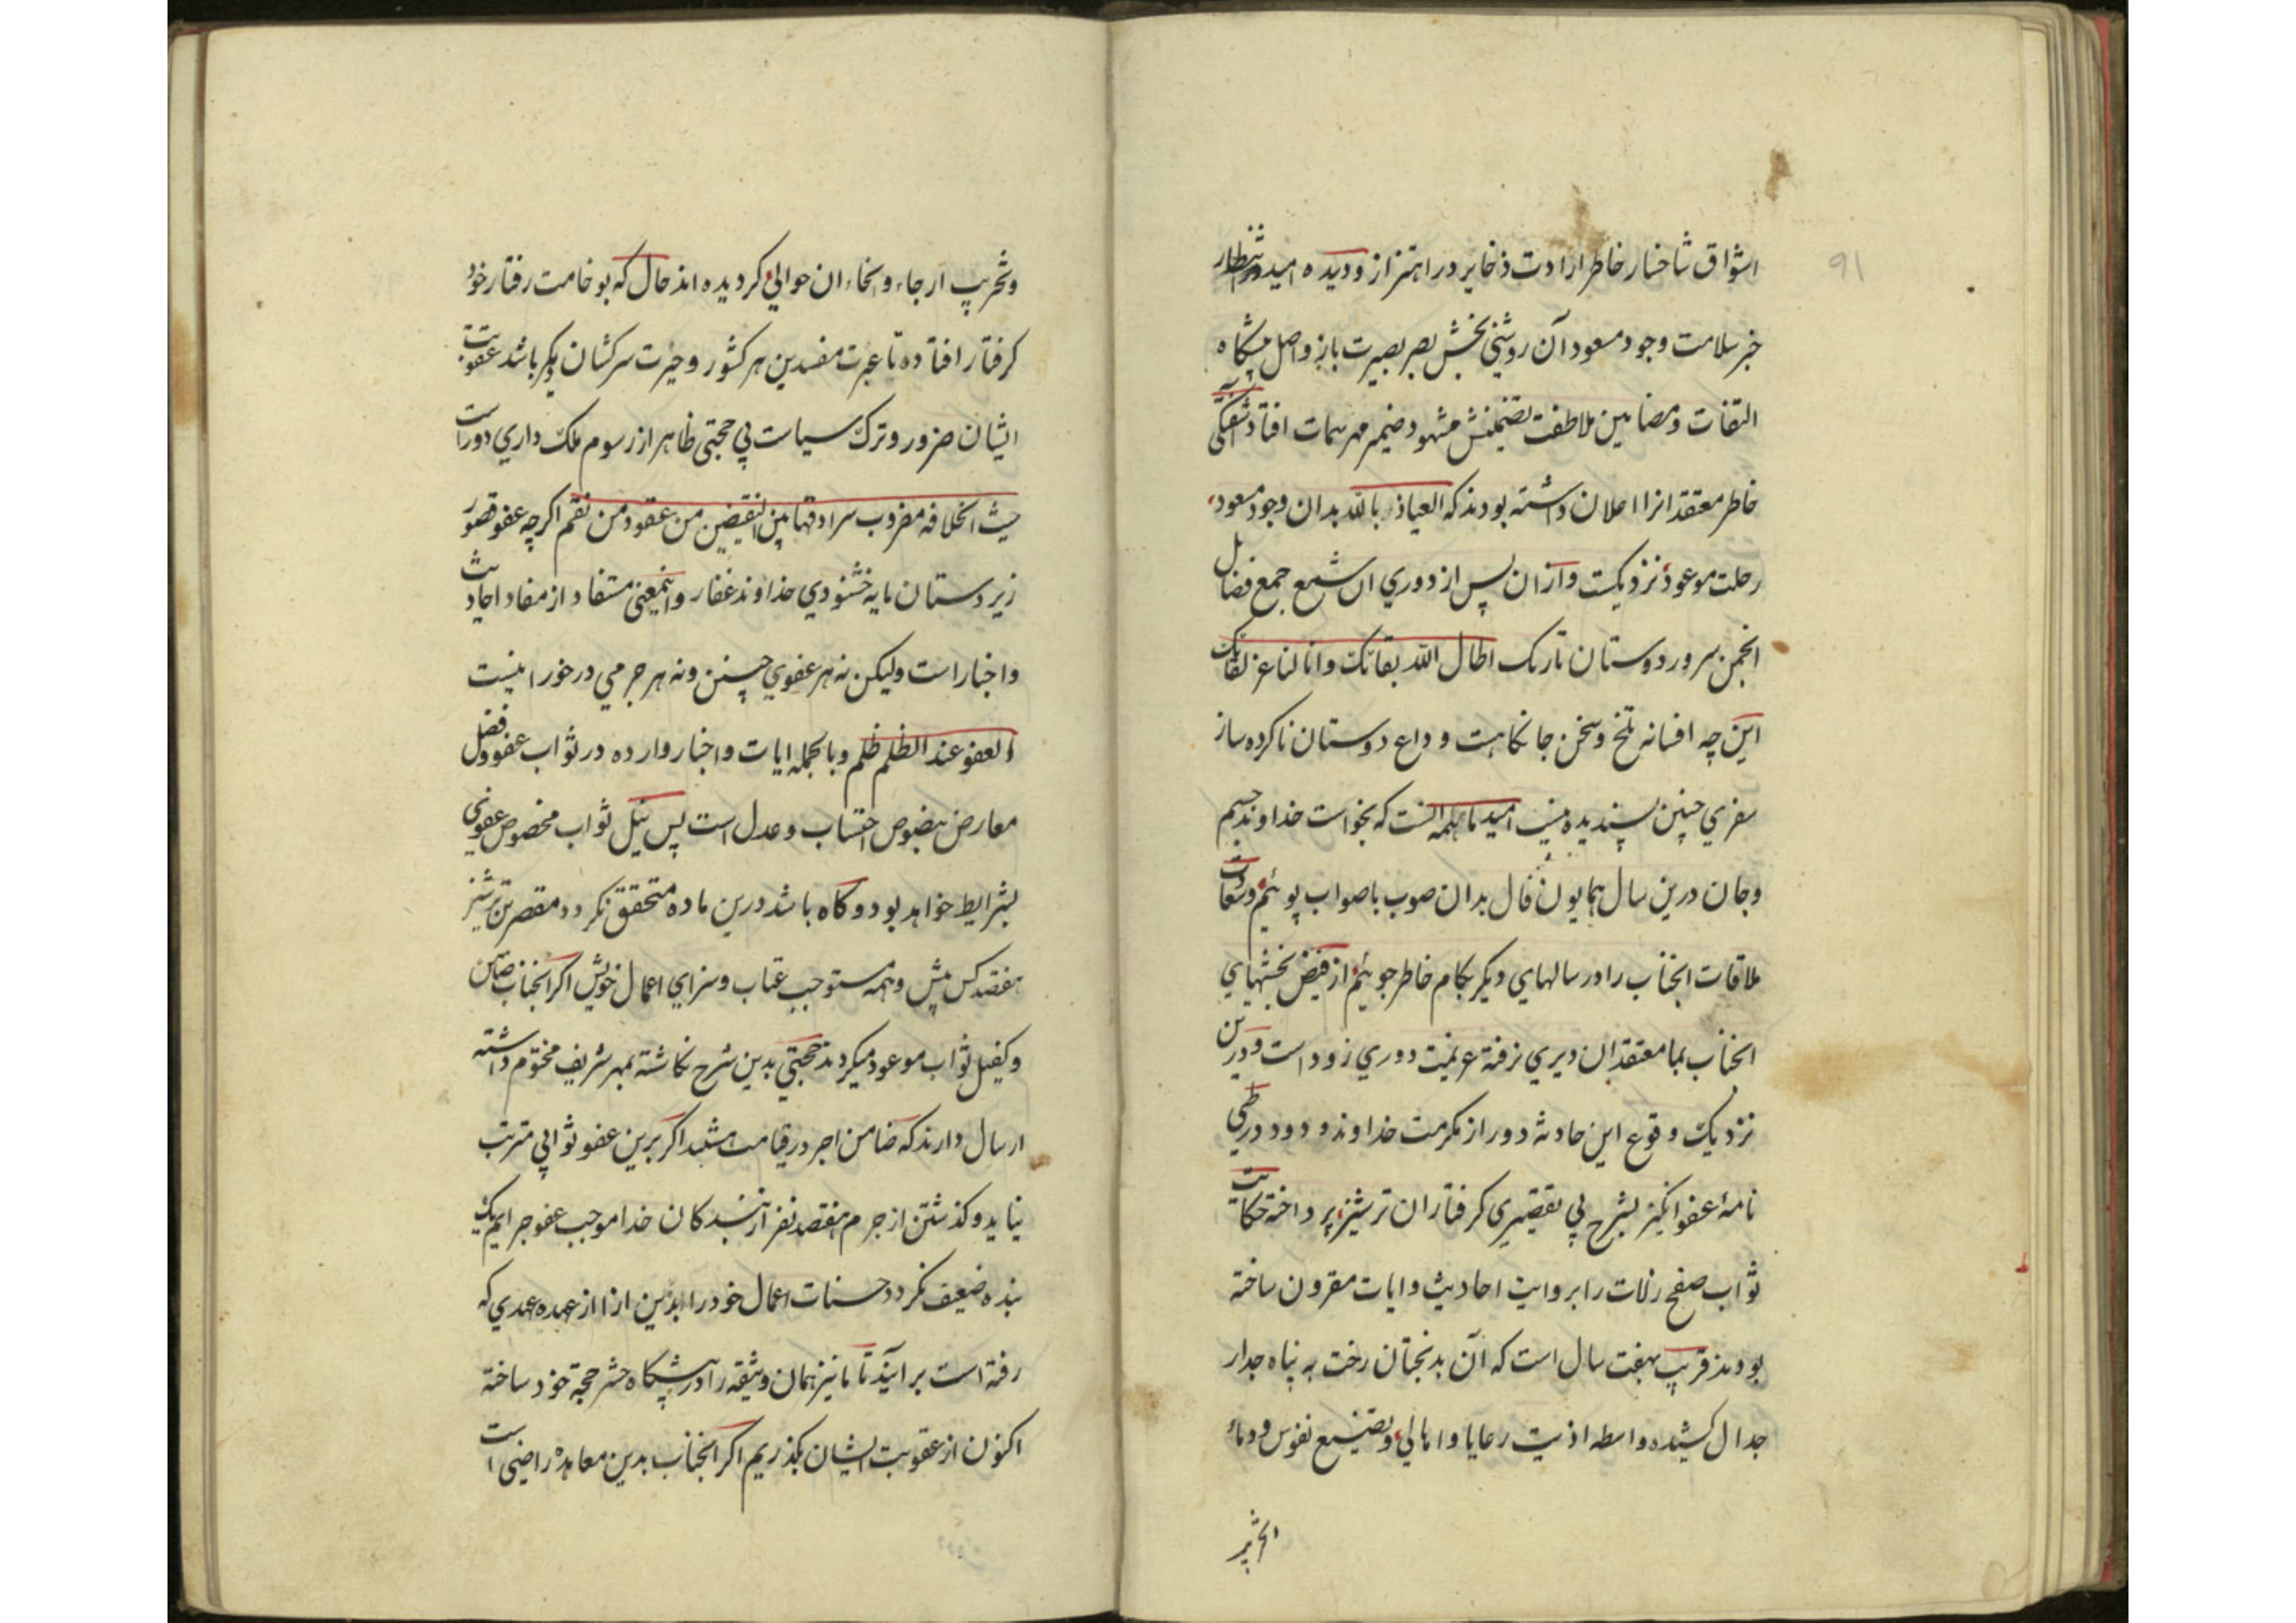 91
اشواق شاخسار خاطر ارادت ذخایر در اهتزاز و دیده امید در انتظار
خبر سلامت وجود مسعود آن روشنی بخش بصر بصیرت باز واصل پیشگاه
التفات و مضامین ملاطفت تضمینش مشهود ضمیر مهر سمات افتاد
خاطر معتقدانرا اعلان داشته بودند که العیاذ بالله بدان وجود مسعود
رحلت موعود نزدیکست و ازان پس از دوری ان شمع جمع فضایل
انجمن سرور دوستان تاریک اطال الله بقائک وانا لنا عز لقائک
این چه افسانه تلخ و سخن جانکاهست وداع دوستان ناکرده ساز
سفری چنین پسندیده نیست امید ما همه انست که بخواست خداوند جسم
و جان درین سال همایون فال بدان صوب باصواب پوئیم و سعادت
ملاقات انجناب را در سالهای دیکر بکام خاطر جوئیم از فیض بخشیهای
انجناب بما معتقدان دیری نرفته عزیمت دوری زود است و درین
نزدیک وقوع این حادثه دور از مکرمت خداوند ودود در طی
نامهٔ عفو انکیز بشرح بی تقصیری کرفتاران ترشیز پرداخته حکایت
ثواب صفح زلات را بروایت احادیث و ایات مقرون ساخته
بودند قریب بهفت سال است که آن بدبختان رخت به پناه جدار
جدال کشیده واسطه اذیت رعایا و اهالی و تضییع نفوس و دماء
و تخریب ارجاء و انحاء ان حوالی کردیده اند حال که بوخامت رفتار خود
کرفتار افتاده تا عبرت مفسدین هر کشور و حیرت سرکشان دیکر باشد عقوبت
ایشان ضرور و ترک سیاست بی حجتی ظاهر از رسوم ملک داری دور است
حیث الخلافه مضروب سرادقها بین النقیضین من عفو و من نقم اکرچه عفو قصور
زیردستان مایه خشنودی خداوند غفار و اینمعنی مستفاد از مفاد احادیث
و اخبار است ولیکن نه هر عفوی حسن و نه هر جرمی درخور اینست
العفو عند الظلم ظلم و بالجمله ایات و اخبار وارده در ثواب عفو و فضل
معارض بنصوص احتساب و عدل است پس نیل ثواب مخصوص عفوی
بشرایط خواهد بود و کاه باشد درین ماده متحقق نکردد مقصرین ترشیز
هفتصد کس بیش و همه مستوجب عتاب و سزای اعمال خویش اکر انجناب ضامن
و کفیل ثواب موعود میکردند حجتی بدین شرح نکاشته بمهر شریف مختوم داشته
ارسال دارند که ضامن اجر در قیامت باشند اکر برین عفو ثوابی مترتب
نیاید و کذشتن از جرم هفتصد نفر از بندکان خدا موجب عفو جرایم یک
بنده ضعیف نکردد حسنات اعمال خود را بدین ازا از عهده عهدی که
رفته است برآیند تا ما نیز همان وثیقه را در پیشکاه حشر حجة خود ساخته
اکنون از عقوبت ایشان بکذریم اکر انجناب بدین معاهده راضی است